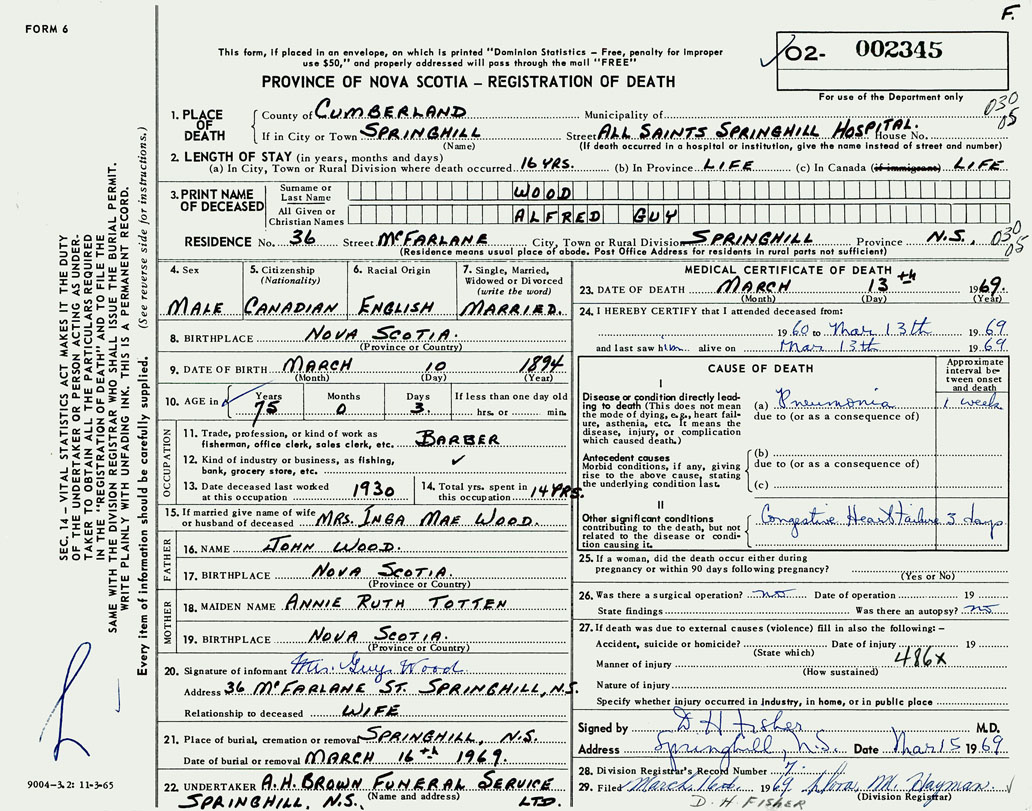 F.
FORM 6
This form, if placed in an envelope, on which is printed "Dominion Statistics – Free, penalty for improper
use $50," and properly addressed will pass through the mail "FREE"
02- 002345
For use of the Department only
PROVINCE OF NOVA SCOTIA – REGISTRATION OF DEATH
1. PLACE OF DEATH County of CUMBERLAND Municipality of 030 05
If in City or Town SPRINGHILL Street ALL SAINTS SPRINGHILL HOSPITAL. House No.
(Name) (If death occurred in a hospital or institution, give the name instead of street and number)
2. LENGTH OF STAY (in years, months and days)
(a) In City, Town or Rural Division where death occurred 16 YRS. (b) In Province LIFE (c) In Canada (if immigrant) LIFE
3. PRINT NAME OF DECEASED Surname or Last Name WOOD
All Given or Christian Names ALFRED GUY
RESIDENCE No. 36 Street MCFARLANE City, Town or Rural Division SPRINGHILL Province N.S. 030 05
(Residence means usual place of abode. Post Office Address for residents in rural parts not sufficient)
4. Sex MALE
5. Citizenship (Nationality) CANADIAN
6. Racial Origin ENGLISH
7. Single, Married, Widowed or Divorced (write the word) MARRIED.
8. BIRTHPLACE NOVA SCOTIA.
(Province or Country)
9. DATE OF BIRTH MARCH 10 1894
(Month) (Day) (Year)
10. AGE in Years 75 Months 0 Days 3. If less than one day old hrs. or min.
OCCUPATION
11. Trade, profession, or kind of work as
fisherman, office clerk, sales clerk, etc. BARBER
12. Kind of industry or business, as fishing,
bank, grocery store, etc. ✓
13. Date deceased last worked at this occupation 1930
14. Total yrs. spent in this occupation 14 YRS.
15. If married give name of wife
or husband of deceased MRS. INGA MAE WOOD.
FATHER
16. NAME JOHN WOOD.
17. BIRTHPLACE NOVA SCOTIA.
(Province or Country)
MOTHER
18. MAIDEN NAME ANNIE RUTH TOTTEN
19. BIRTHPLACE NOVA SCOTIA.
(Province or Country)
20. Signature of informant Mrs. Guy Wood
Address 36 MCFARLANE ST. SPRINGHILL, N.S.
Relationship to deceased WIFE
21. Place of burial, cremation or removal SPRINGHILL, N.S.
Date of burial or removal MARCH 16th 1969.
22. UNDERTAKER A.H. BROWN FUNERAL SERVICE
(Name and address)
SPRINGHILL, N.S. LTD.
MEDICAL CERTIFICATE OF DEATH
23. DATE OF DEATH MARCH 13th 1969.
(Month) (Day) (Year)
24. I HEREBY CERTIFY that I attended deceased from:
1960 to Mar 13th 1969
and last saw him alive on Mar 13th 1969
CAUSE OF DEATH
Approximate interval between onset and death
I
Disease or condition directly leading to death (This does not mean the mode of dying, e.g., heart failure, asthenia, etc. It means the disease, injury, or complication which caused death.)
(a) Pneumonia 1 week
due to (or as a consequence of)
Antecedent causes
Morbid conditions, if any, giving rise to the above cause, stating the underlying condition last.
(b)
due to (or as a consequence of)
(c)
II
Other significant conditions contributing to the death, but not related to the disease or condition causing it.
Congestive Heart Failure 3 days
25. If a woman, did the death occur either during
pregnancy or within 90 days following pregnancy?
(Yes or No)
26. Was there a surgical operation? no Date of operation 19
State findings Was there an autopsy? no
27. If death was due to external causes (violence) fill in also the following: –
Accident, suicide or homicide? Date of injury 19
(State which)
Manner of injury 486x
(How sustained)
Nature of injury
Specify whether injury occurred in Industry, in home, or in public place
Signed by D H Fisher M.D.
Address Springhill, N.S. Date Mar 15 1969
28. Division Registrar's Record Number 7.
29. Filed March 16th 1969 M. Hayman
(Division Registrar)
D. H FISHER
SEC. 14 – VITAL STATISTICS ACT MAKES IT THE DUTY
OF THE UNDERTAKER OR PERSON ACTING AS UNDER-
TAKER TO OBTAIN ALL THE PARTICULARS REQUIRED
IN THE "REGISTRATION OF DEATH" AND TO FILE THE
SAME WITH THE DIVISION REGISTRAR WHO SHALL ISSUE THE BURIAL PERMIT.
WRITE PLAINLY WITH UNFADING INK. THIS IS A PERMANENT RECORD.
Every item of information should be carefully supplied. (See reverse side for instructions.)
9004-3.2: 11-3-65